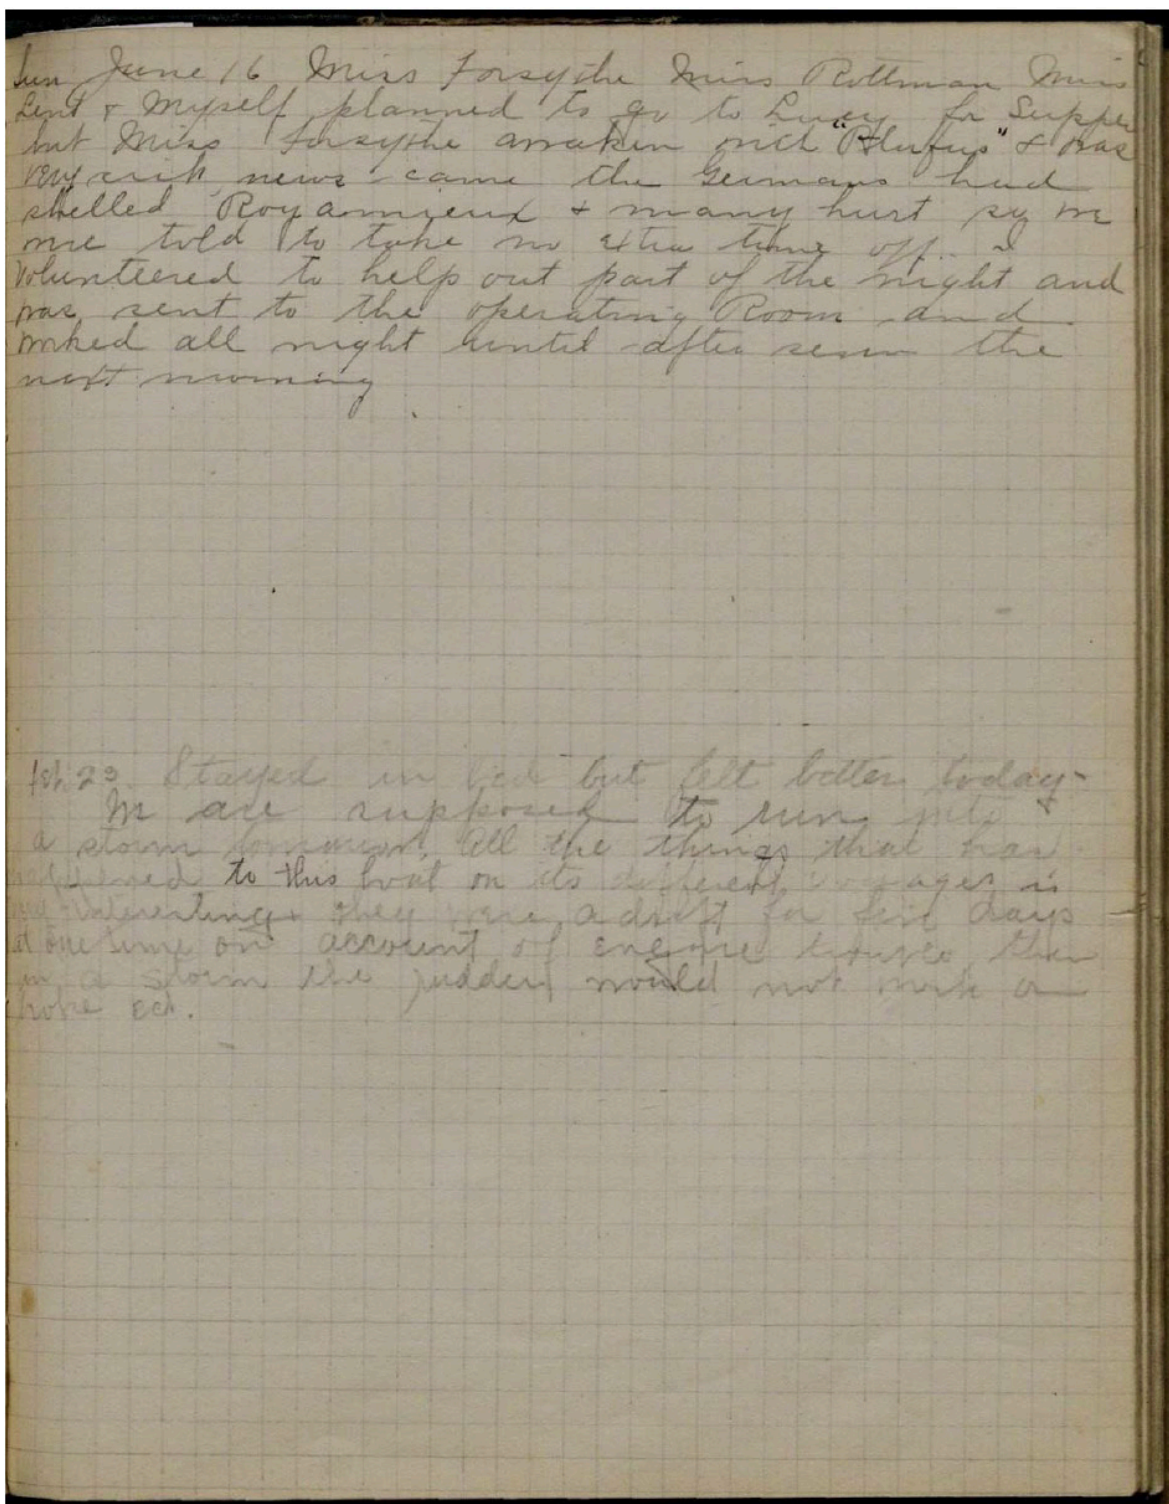 Sun June 16 Miss Forsythe Miss Rottman Miss
Lent & Myself planned to go to Lucy for Supper
but Miss Forsythe awaken with "Rufus" & was
very sick news came the Germans had
shelled Royamieux & many hurt so we
me told to take no extra time off. I
volunteered to help out part of the night and
was sent to the operating Room and
worked all night until after seven the
next morning
feb 23. Stayed in bed but felt better today-
We are supposed to run into
a storm tomorrow. All the things that has
happened to this boat on its different voyages is
very interesting they were adrift for five days
at one time on account of engine trouble then
in a storm the rudder would not work or
broke ect.